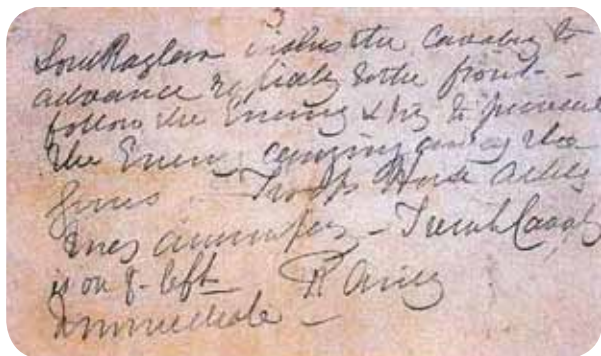 3
Lord Raglan wishes the Cavalry to
advance rapidly to the front –
follow the Enemy & try to prevent
the Enemy carrying away the
guns – Troop Horse Artily
may accompany – French Cavaly
is on yr left R Airey
Immediate –